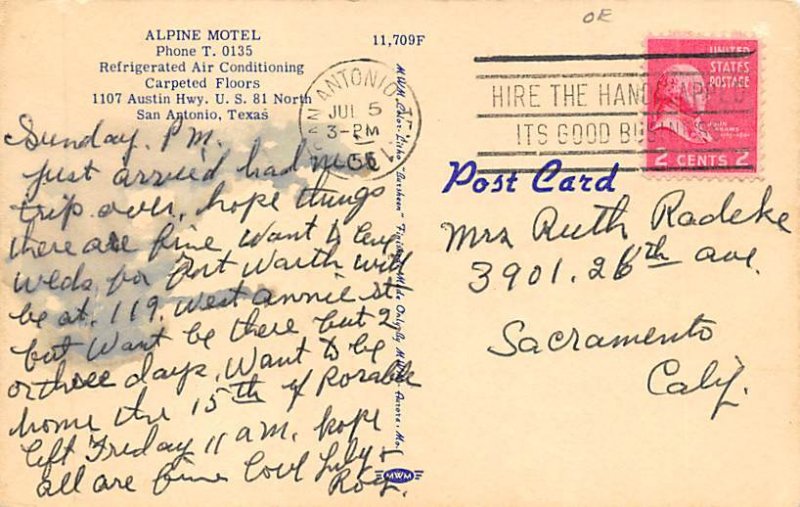 ALPINE MOTEL
Phone T. 0135
Refrigerated Air Conditioning
Carpeted Floors
1107 Austin Hwy. U. S. 81 North
San Antonio, Texas
11,709F
OE
SAN ANTONIO, TEX.
JUL 5
3-PM
HIRE THE HANDICAPPED
ITS GOOD BUSINESS
UNITED
STATES
POSTAGE
JOHN
ADAMS
2 CENTS 2
Post Card
Sunday. P.M.
just arrived had nice
trip over, hope things
there are fine want to leave
Weds. for Fort Warth will
be at. 119. West annie st.
but Want be there but 2
or three days. Want to be
home the 15th if Porable
left Friday 11 a.m. hope
all are fine Love July +
Roy.
Mrs Ruth Radeke
3901. 26th ave.
Sacramento
Calif.
MWM Color-Litho "Larsheen" Finished Made Only By MWM, Aurora, Mo.
MWM